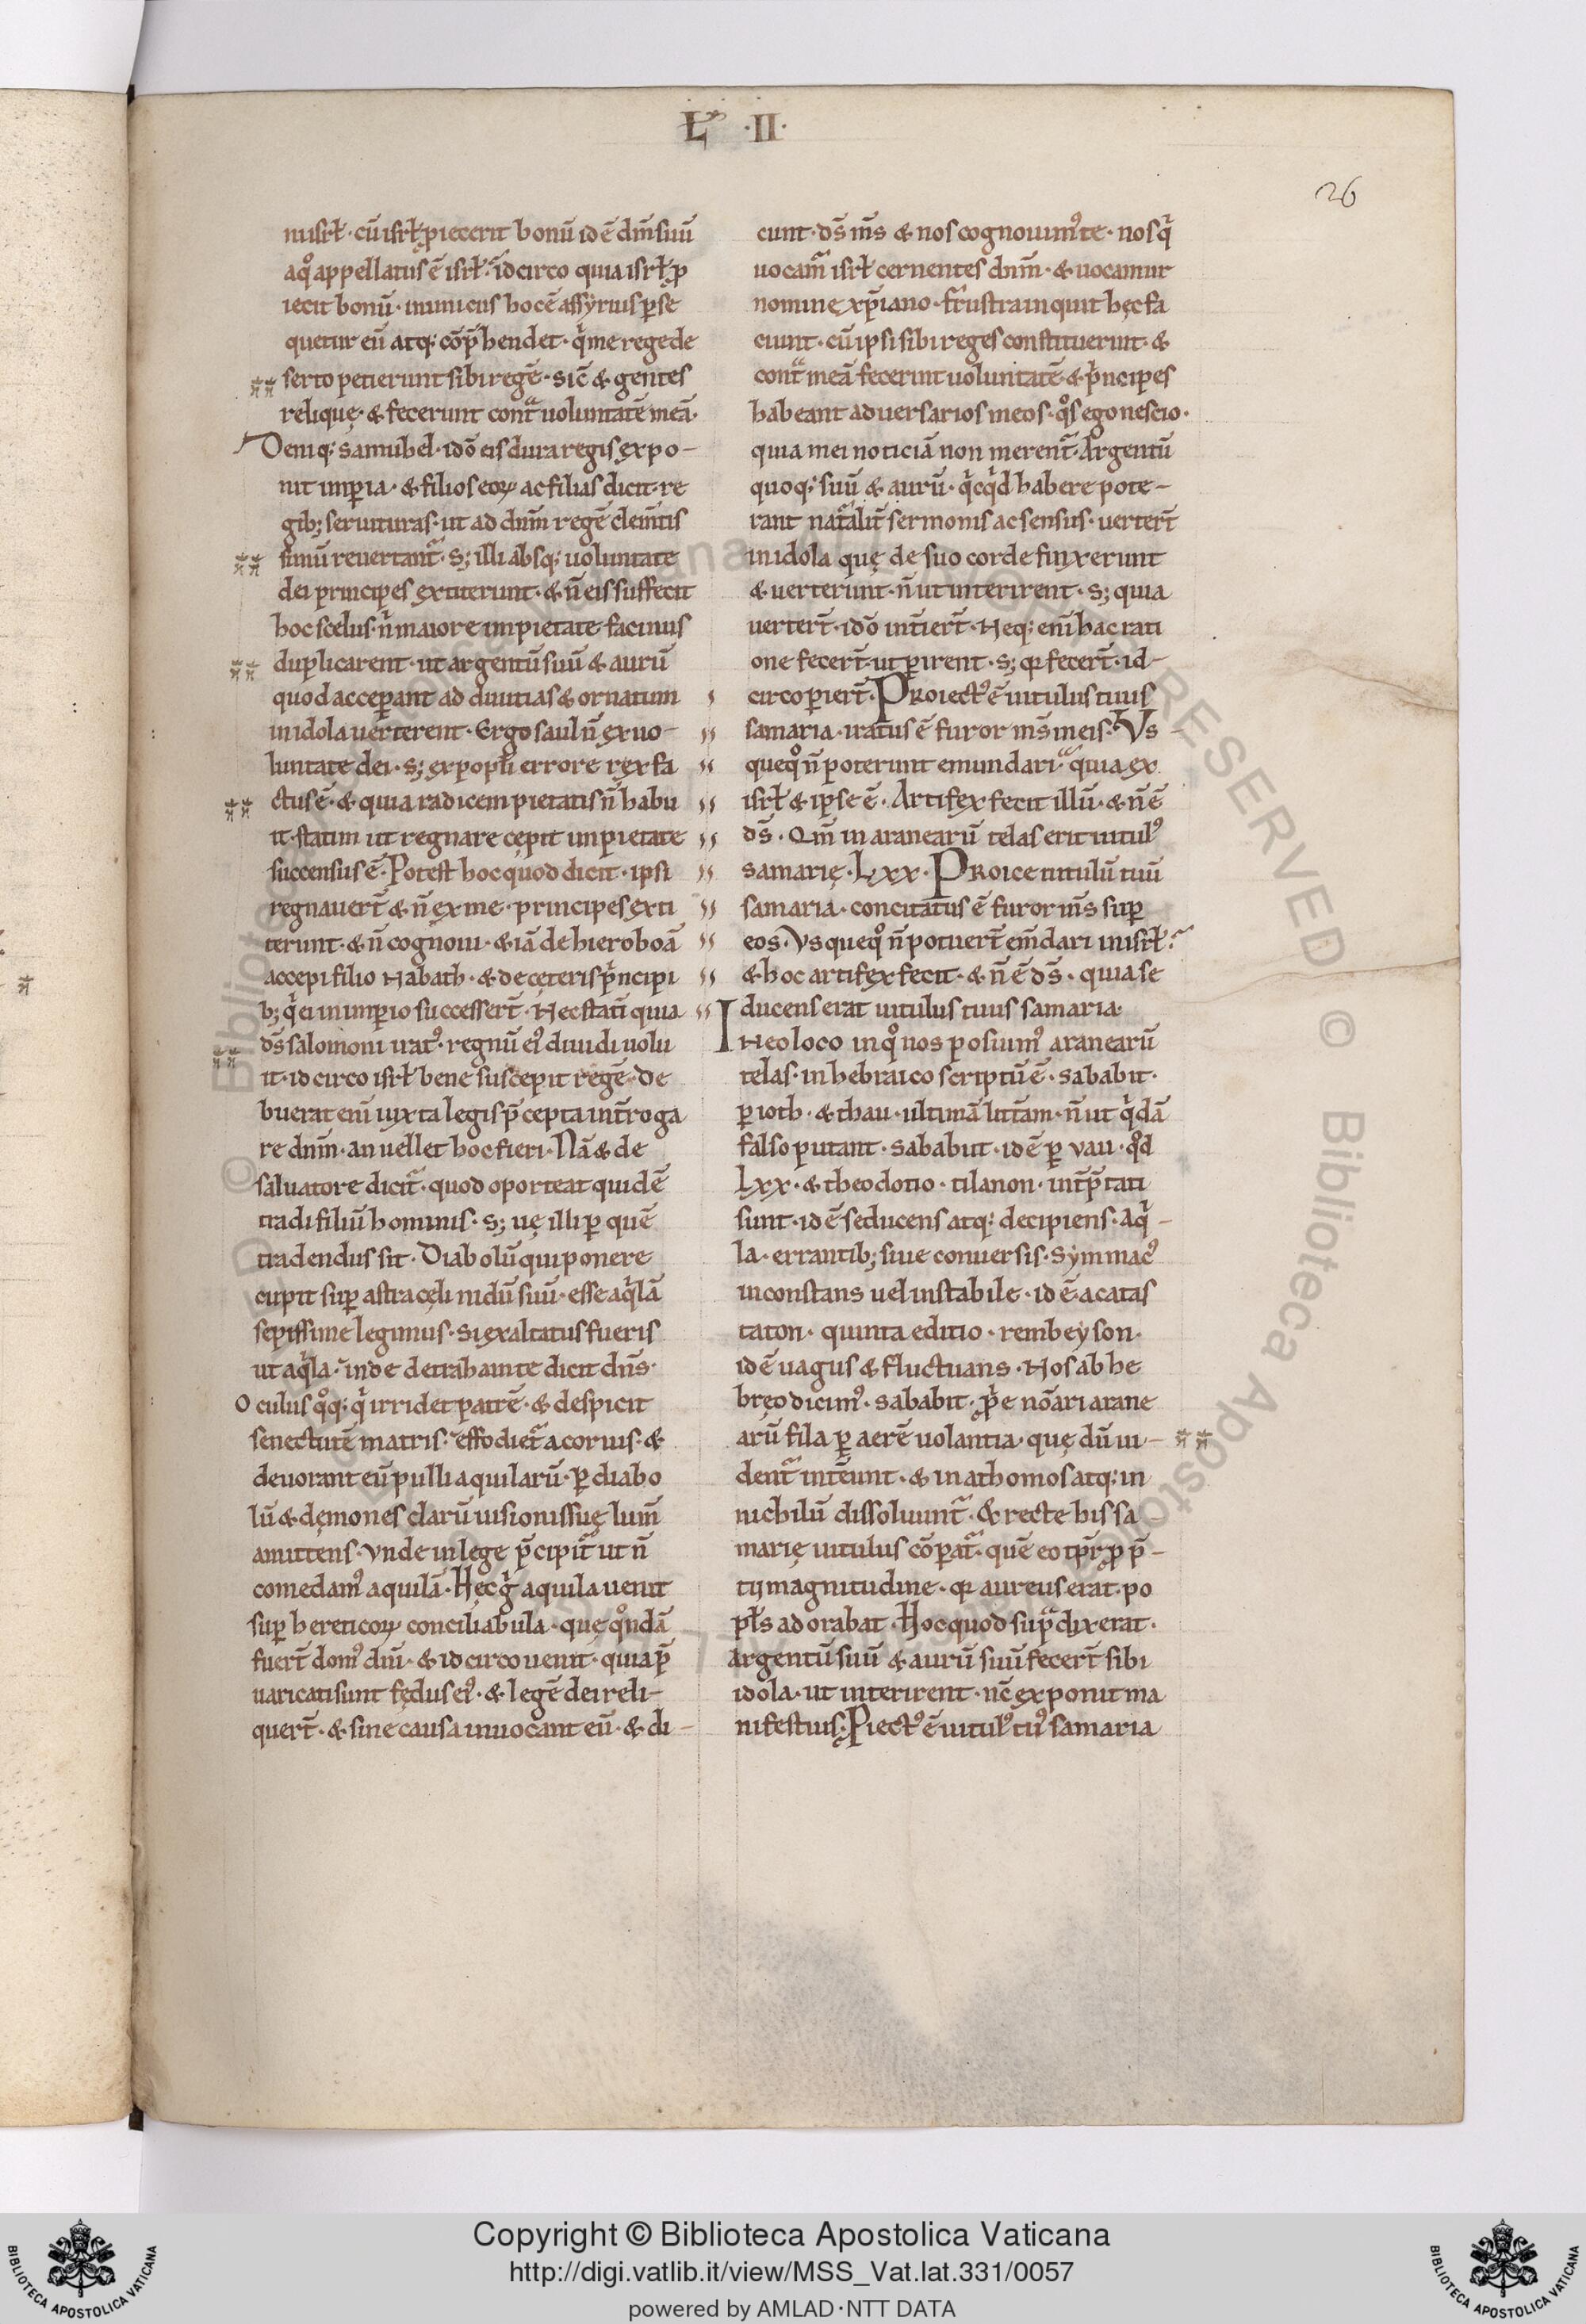 Lꝰ ·II·
26
nusrł· cū isrł ꝓiecerit bonū id ē dm̄ suū
a qͦ appellatus ē isrł· idcirco quia isrł ꝓ
iecit bonū· inimicus hoc ē assyrius ꝑse
quetur eū atq; cōp̄hendet· qͥ me rege de
serto petierunt sibi regē· sic̄ & gentes
reliquę· & fecerunt cont̄ uoluntatē meā·
Deniq; samuhel· idō eis dura regis expo-
nit imꝑia· & filios eoꝝ ac filias dicit· re
gib; seruituras· ut ad dnm̄ regē clem̄tis
simū reuertant̄· S; illi absq; uoluntate
dei principes extiterunt· & n̄ eis suffecit
hoc scelus· n̄ maiore impietate facinus
duplicarent· ut argentū suū & aurū
quod acceꝑant ad diuitias & ornatum
in idola uerterent· Ergo saul n̄ ex uo-
luntate dei· S; ex popłi errore rex fa
ctus ē· & quia radicem pietatis n̄ habu
it· statim ut regnare cepit impietate
succensus ē· Potest hoc quod dicit· ipsi
regnauer̄t & n̄ ex me· principes exti
terunt· & n̄ cognoui· & iā de hieroboā
accepi filio Nabath· & de cęteris pͥncipi
b; qͥ ei in imꝑio successer̄t· Nec statī quia
ds̄ salomoni iratꝰ· regnū eiꝰ diuidi uolu
it· idcirco isrł bene suscepit regē· De
buerat enī iuxta legis p̄cepta int̄roga
re dnm̄· an uellet hoc fieri· Nā & de
saluatore dicit̄· quod oporteat quidē
tradi filiū hominis· S; uę illi ꝑ quē
tradendus sit· Diabolū qui ponere
cupit suꝑ astra cęli nidū suū· esse aqͥlā
sepissime legimus· Si exaltatus fueris
ut aqͥla· inde detraham te dicit dn̄s·
Oculus qͦq; qͥ irridet patrē· & despicit
senectutē matris· effodiet̄ a coruis· &
deuorant eū pulli aquilarū· ꝑ diabo
lū & dęmones clarū uisionis suę lum̄
amittens· Vnde in lege p̄cipit̄ ut n̄
comedamꝰ aquilā· Hęc gͥ aquila uenit
suꝑ hereticoꝝ conciliabula· quę qͦndā
fuer̄t domꝰ dn̄i· & idcirco uenit· quia p̄
uaricati sunt fędus eiꝰ· & legē dei reli-
quer̄t· & sine causa inuocant eū· & di-
cunt· ds̄ ms̄ & nos cognouimꝰ te· nos qͥ
uocam̄ isrł cernentes dnm̄· & uocamur
nomine xp̄iano· frustra inquit hęc fa
ciunt· cū ipsi sibi reges constituerint· &
cont̄ meā fecerint uoluntatē· & pͥncipes
habeant aduersarios meos· qͦs ego nescio·
quia mei noticiā non merent̄· Argentū
quoq; suū & aurū· qͥcqͥd habere pote-
rant nat̄alit̄ sermonis ac sensus· uerter̄t
in idola quę de suo corde finxerunt
& uerterunt· n̄ ut interirent· S; quia
uerter̄t· idō int̄ier̄t· Neq; enī hac rati
one fecer̄t· ut ꝑirent· S; qꝛ fecer̄t· id-
circo ꝑier̄t· Proiectꝰ ē uitulus tuus
samaria· iratus ē furor ms̄ in eis· Vs
quequͦ n̄ poterunt emundari· quia ex
isrł & ipse ē· Artifex fecit illū· & n̄ ē
ds̄· Qm̄ in aranearū telas erit uitulꝰ
samarię· Lxx· Proice uitulū tuū
samaria· concitatus ē furor ms̄ suꝑ
eos· Vsquequͦ n̄ potuer̄t em̄dari in isrł·
& hoc artifex fecit· & n̄ ē ds̄· quia se
ducens erat uitulus tuus samaria·
In eo loco in qͦ nos posuimꝰ aranearū
telas· in hebraico scriptū ē· sababit·
ꝑ ioth· & thau· ultimā litt̄am· n̄ ut qͥdā
falso putant· sababut· id ē ꝑ vau· qͦd
Lxx· & theodotio· tilanon· int̄p̄tati
sunt· id ē seducens atq; decipiens· Aqͥ-
la· errantib; siue conuersis· Symmacꝰ
inconstans uel instabile· id ē acatas
taton· quinta editio· rembeyson·
id ē uagus & fluctuans· Nos ab he
bręo dicimꝰ· sababit· ꝓpͥe nōari arane
arū fila ꝑ aerē uolantia· quę dū ui-
dent̄ int̄eunt· & in athomos atq; in
nichilū dissoluunt̄· & recte his sa-
marię uitulus cōꝑat̄· quē eo tp̄r ꝓ p̄-
tij magnitudine· qꝛ aureus erat· po
płs adorabat· Hoc quod sup̄ dixerat·
argentū suū & aurū suū fecer̄t sibi
idola· ut interirent· nc̄ exponit ma
nifestius· Ꝓiectꝰ ē uitulꝰ tuꝰ samaria
Copyright © Biblioteca Apostolica Vaticana
http://digi.vatlib.it/view/MSS_Vat.lat.331/0057
powered by AMLAD·NTT DATA
BIBLIOTECA APOSTOLICA VATICANA
BIBLIOTECA APOSTOLICA VATICANA